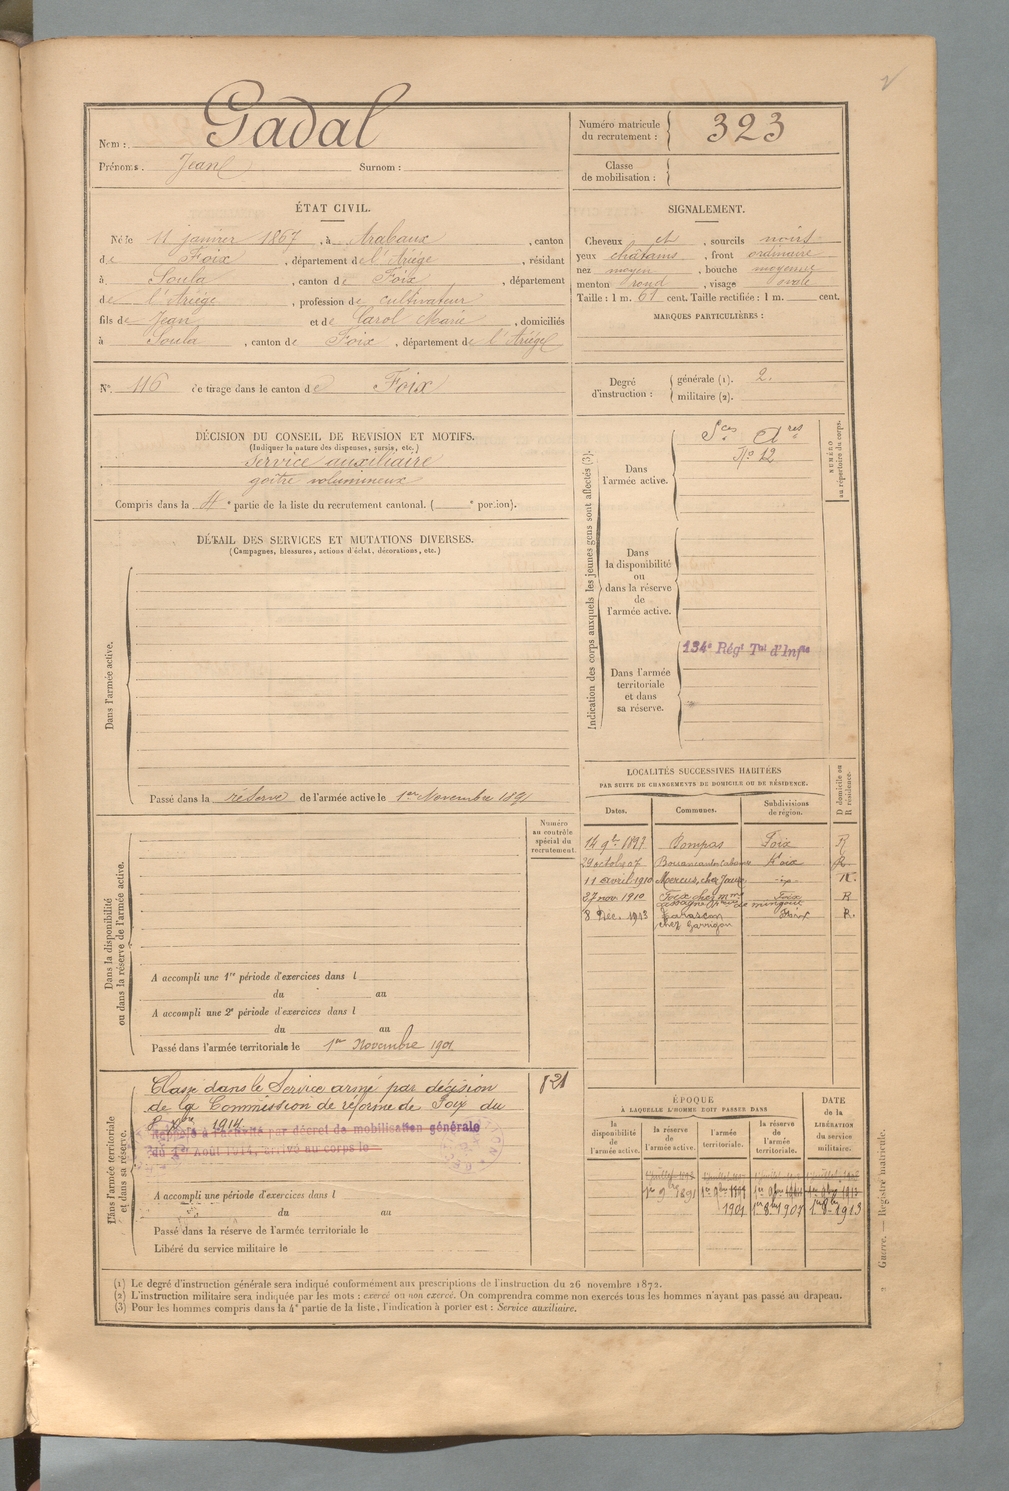 Nom : Gadal
Prénoms. Jean Surnom :
Numéro matricule
du recrutement : 323
Classe
de mobilisation :
ÉTAT CIVIL.
Né le 11 janvier 1867, à Arabaux, canton
de Foix, département de l'Ariège, résidant
à Soula, canton de Foix, département
de l'Ariège, profession de cultivateur
fils de Jean et de Carol Marie, domiciliés
à Soula, canton de Foix, département de l'Ariège
SIGNALEMENT.
Cheveux et, sourcils noirs
yeux châtains, front ordinaire
nez moyen, bouche moyenne
menton rond, visage ovale
Taille : 1 m. 61 cent. Taille rectifiée : 1 m. cent.
MARQUES PARTICULIÈRES :
N°. 116 de tirage dans le canton de Foix
Degré
d'instruction :
générale (1). 2.
militaire (2).
DÉCISION DU CONSEIL DE REVISION ET MOTIFS.
(Indiquer la nature des dispenses, sursis, etc.)
Service auxiliaire
goître volumineux
Compris dans la 4e partie de la liste du recrutement cantonal. ( e portion).
DÉTAIL DES SERVICES ET MUTATIONS DIVERSES.
(Campagnes, blessures, actions d'éclat, décorations, etc.)
Dans l'armée active.
Passé dans la réserve de l'armée active le 1er Novembre 1891
Indication des corps auxquels les jeunes gens sont affectés (3).
Dans
l'armée active.
Sces Ares
No 12
NUMÉRO
au répertoire du corps.
Dans
la disponibilité
ou
dans la réserve
de
l'armée active.
Dans l'armée
territoriale
et dans
sa réserve.
134e Régt Tal d'Infie
LOCALITÉS SUCCESSIVES HABITÉES
PAR SUITE DE CHANGEMENTS DE DOMICILE OU DE RÉSIDENCE.
Dates. Communes. Subdivisions
de région.
D domicile ou
R résidence.
14 9bre 1897 Pompas Foix R
29 octob 07 Foix R
11 avril 1910 Mercus, chez R.
27 nov. 1910 Foix chez Mme Foix R
8 Déc. 1913 Tarascon Foix R.
chez Garrigou
Numéro
au contrôle
spécial du
recrutement.
Dans la disponibilité
ou dans la réserve de l'armée active.
A accompli une 1re période d'exercices dans l
du au
A accompli une 2e période d'exercices dans l
du au
Passé dans l'armée territoriale le 1er Novembre 1901
Dans l'armée territoriale
et dans sa réserve.
Classé dans le Service armé par décision
de la Commission de réforme de Foix du
8 Xbre 1914
Rappelé à l'activité par décret de mobilisation générale
du 1er Août 1914, arrivé au corps le
121
A accompli une période d'exercices dans l
du au
Passé dans la réserve de l'armée territoriale le
Libéré du service militaire le
ÉPOQUE
À LAQUELLE L'HOMME DOIT PASSER DANS
DATE
de la
LIBÉRATION
du service
militaire.
la
disponibilité
de
l'armée active.
la réserve
de
l'armée active.
l'armée
territoriale.
la réserve
de
l'armée
territoriale.
1er 9bre 1891
1901 1er 8bre 1907 1er 8bre 1913
(1) Le degré d'instruction générale sera indiqué conformément aux prescriptions de l'instruction du 26 novembre 1872.
(2) L'instruction militaire sera indiquée par les mots : exercé ou non exercé. On comprendra comme non exercés tous les hommes n'ayant pas passé au drapeau.
(3) Pour les hommes compris dans la 4e partie de la liste, l'indication à porter est : Service auxiliaire.
Guerre. — Registre matricule.